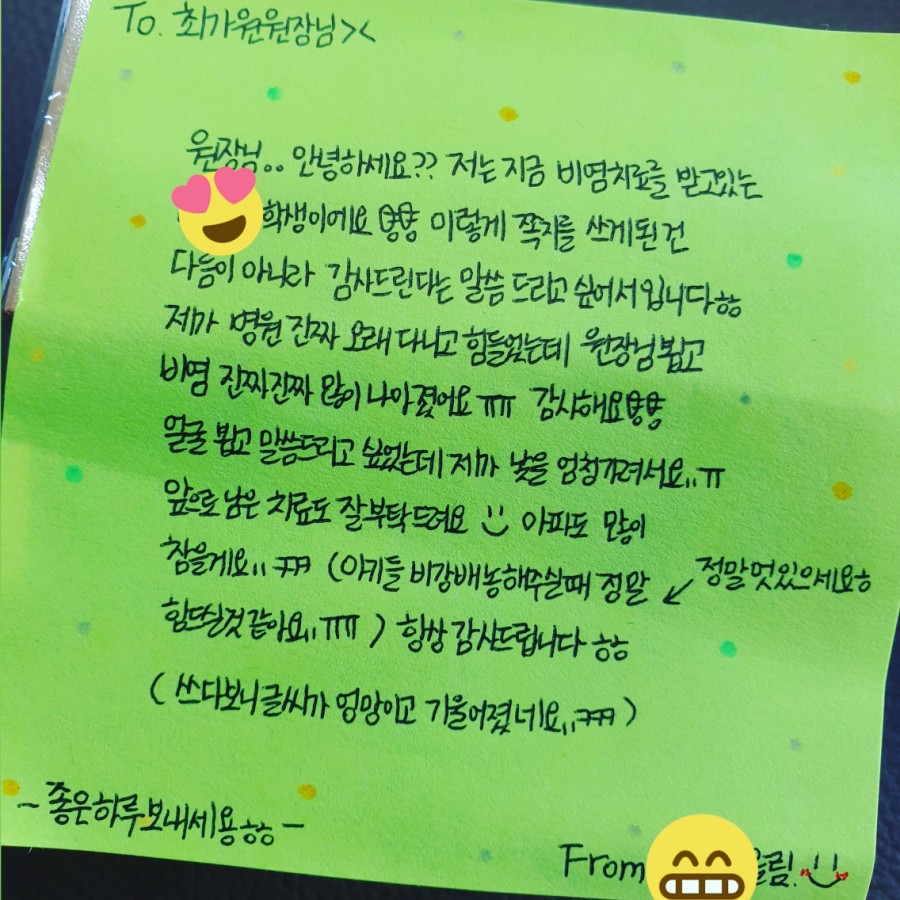 To. 최가원원장님><
원장님.. 안녕하세요?? 저는 지금 비염치료를 받고있는
학생이에요 이렇게 쪽지를 쓰게된 건
다름이 아니라 감사드린다는 말씀 드리고 싶어서입니다ㅎㅎ
제가 병원 진짜 오래 다니고 힘들었는데 원장님 뵙고
비염 진짜진짜 많이 나아졌어요ㅠㅠ 감사해요
얼굴 뵙고 말씀드리고 싶었는데 제가 낯을 엄청가려서요,,ㅠ
앞으로 남은 치료도 잘부탁드려요 아파도 많이
참을게요,,ㅋㅋㅋ (아가들 비강배농해주실때 정말 ↙ 정말멋있으세요ㅎ
힘드실것 같아요,,ㅠㅠ) 항상 감사드립니다 ㅎㅎ
(쓰다보니글씨가 엉망이고 기울어졌네요,,ㅋㅋㅋ)
- 좋은하루보내세용ㅎㅎ -
From 올림.